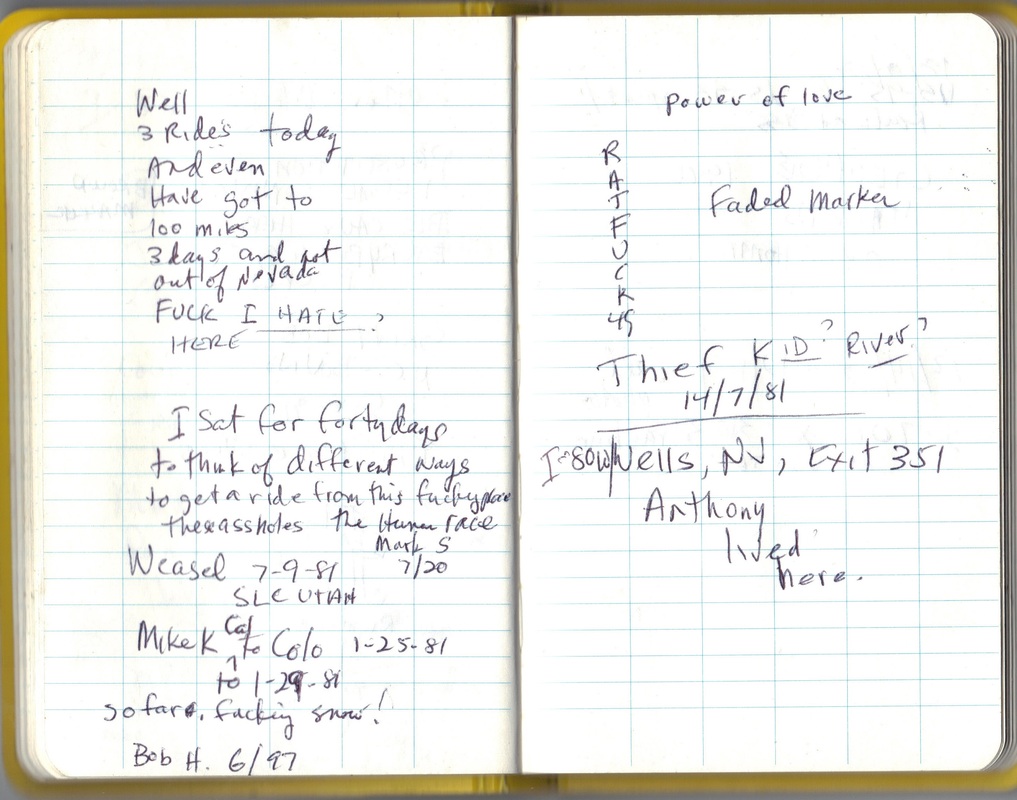 Well
3 Rides today
And even
Have got to
100 miles
3 days and not
out of Nevada
FUCK I HATE ?
HERE
I sat for forty days
to think of different ways
to get a ride from this fucking place
these assholes the Human race
Mark S
Weasel 7-9-81 7/20
SLC UTAH
Mike K Cal to Colo 1-25-81
to 1-29-81
so far, fucking snow!
Bob H. 6/97
power of love
R
A
T
F
U
C
K
49
Faded Marker
Thief KID? River?
14/7/81
I-80W Wells, NV, Exit 351
Anthony
lived
here.